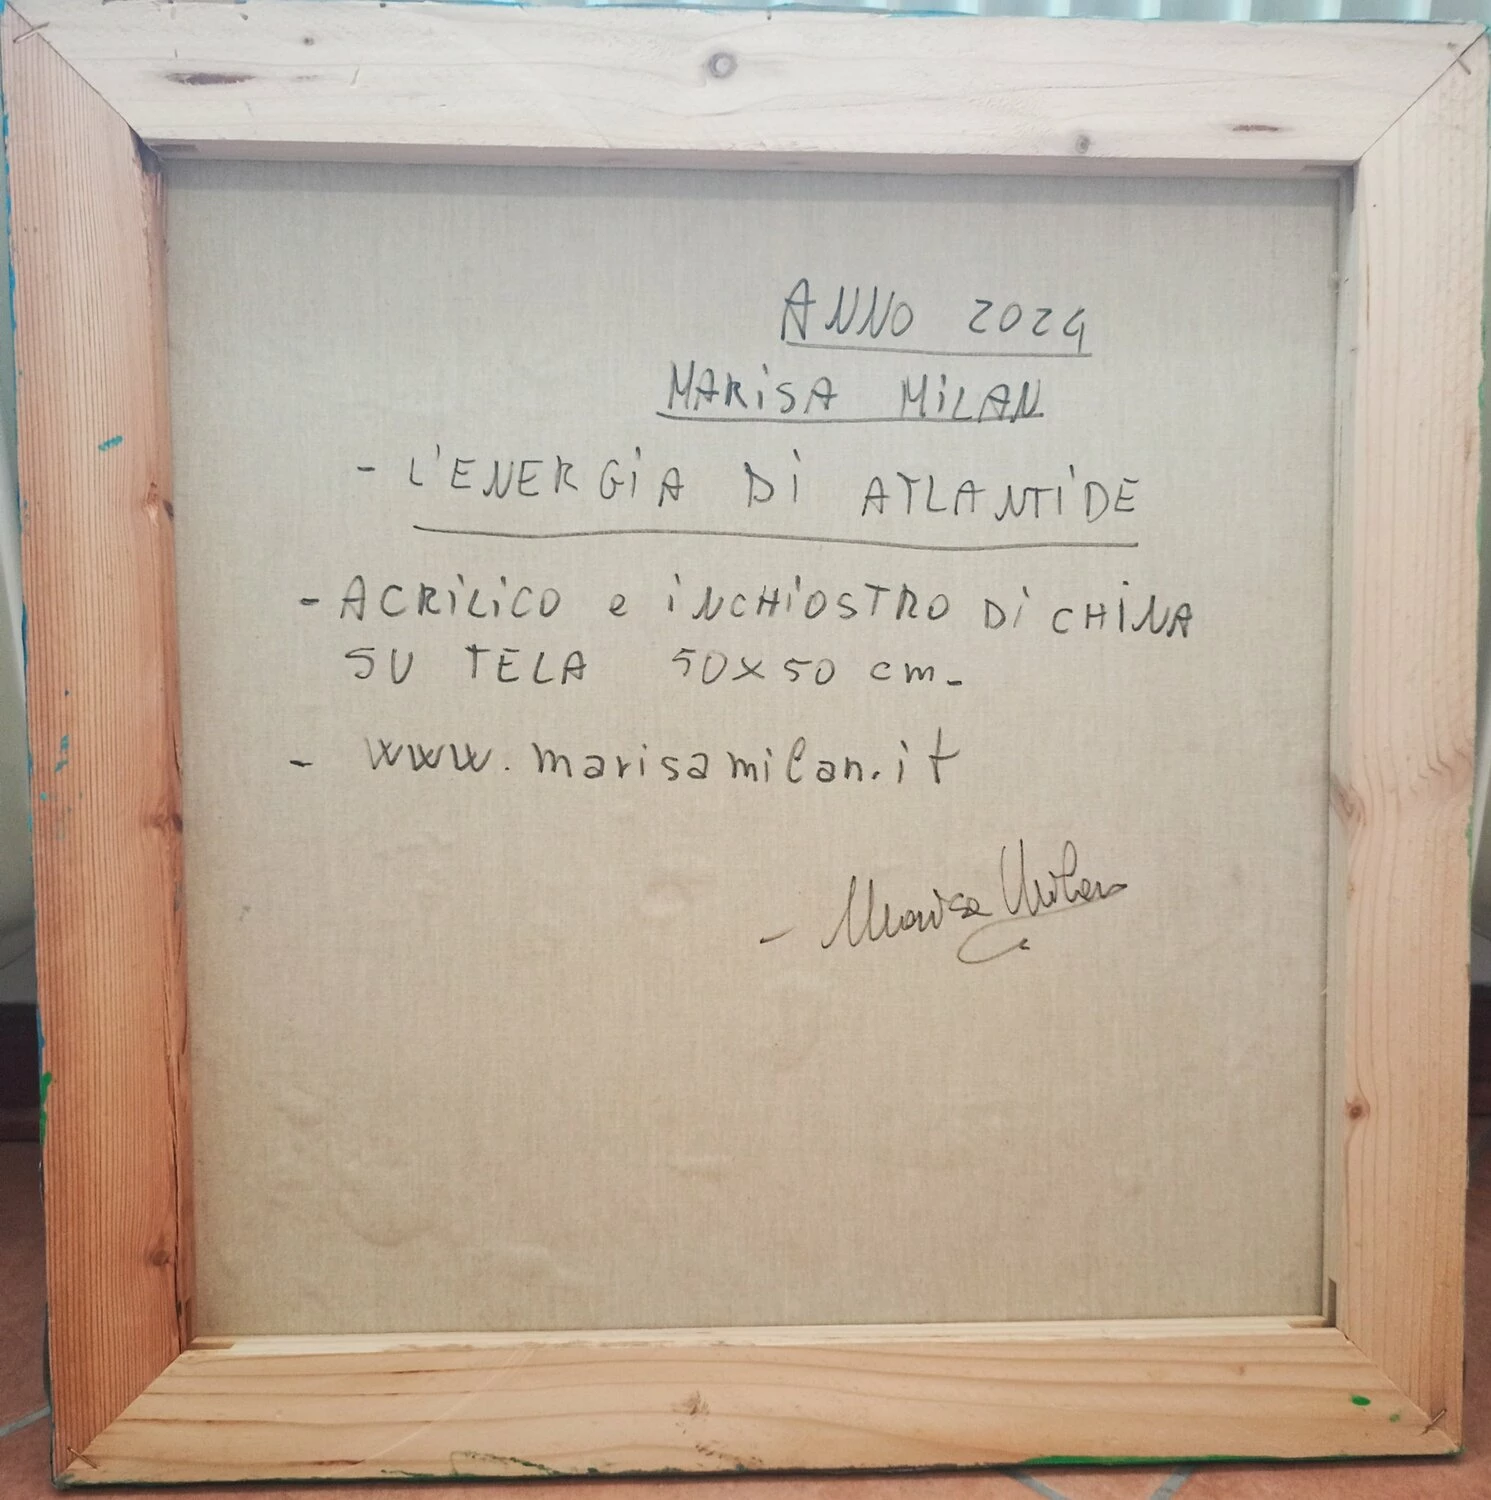 ANNO 2024
MARiSA MiLAN
- L'ENERGiA Di ATLANTiDE
- ACRiLiCO e iNCHiOSTRO Di CHiNA
SU TELA 50x50 cm-
- www.marisamilan.it
- Marisa Milan